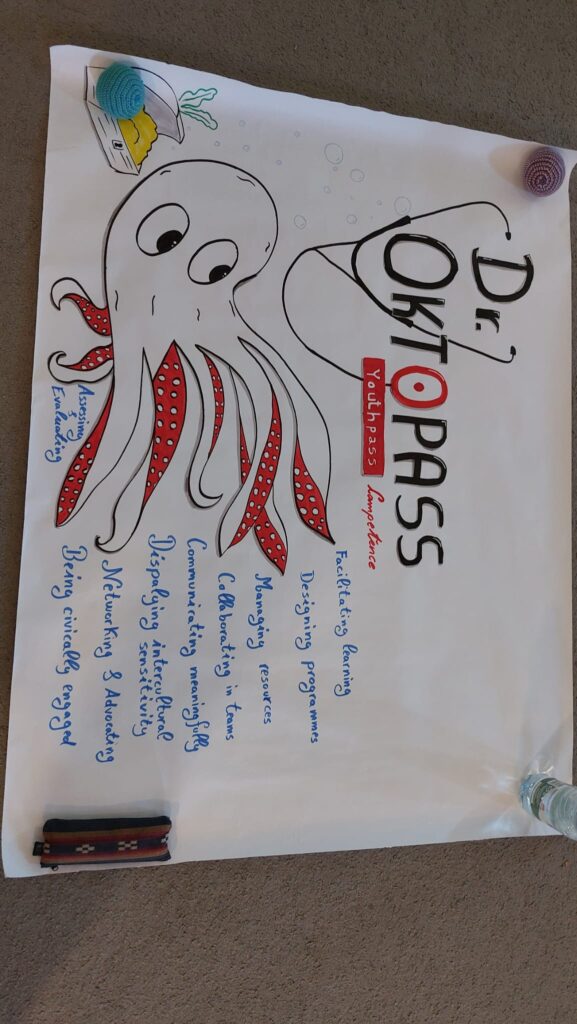 Dr.
OKTOPASS
Youthpass Competence
Facilitating learning
Designing programmes
Managing resources
Collaborating in teams
Communicating meaningfully
Dispalying intercultural
sensitivity
Networking & Advocating
Being civically engaged
Assessing
&
Evaluating